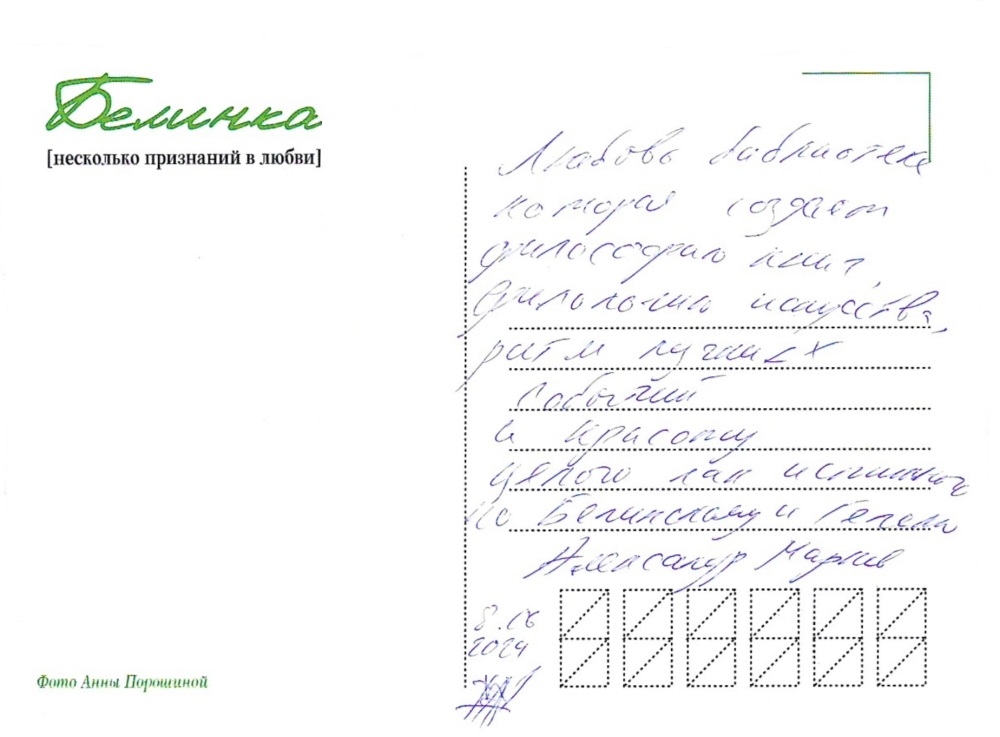 Белинка
[несколько признаний в любви]
Любовь библиотеке
которая создает
философию книг,
филологию искусства,
ритм лучших
событий
и красоту
целого как истинного
по Белинскому и Гегелю
Александр Марков
8.IX
2024
Фото Анны Порошиной